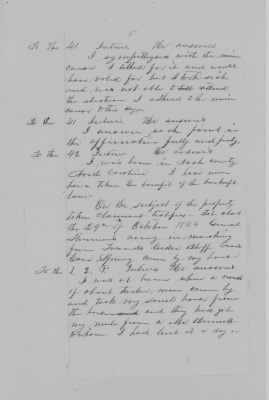 5
To the 41 Interro He answers
I sympathized with the union
cause I talked for it and would
have voted for but I took sick
and was not able to attend
the election I adhered to the union
cause to the
To the 41 Interro He answers
I answer each point in
the affirmative fully and fully
To the 42 Interro He answers
I was born in Ash county
North Carolina I have never
taken the benefit of the bankrupt
law
On the subject of the property
taken claimant testifies. On about
the 29th of October 1864 General
Shermans army in marching
from towards Cedar Bluff
Cave Spring came by my house
To the 1, 2, Interro He answers
I was at home when a
of about men came by
and took my sorrel horse from
the and they had got
my mule from a Mr.
whom I had lent it a day or